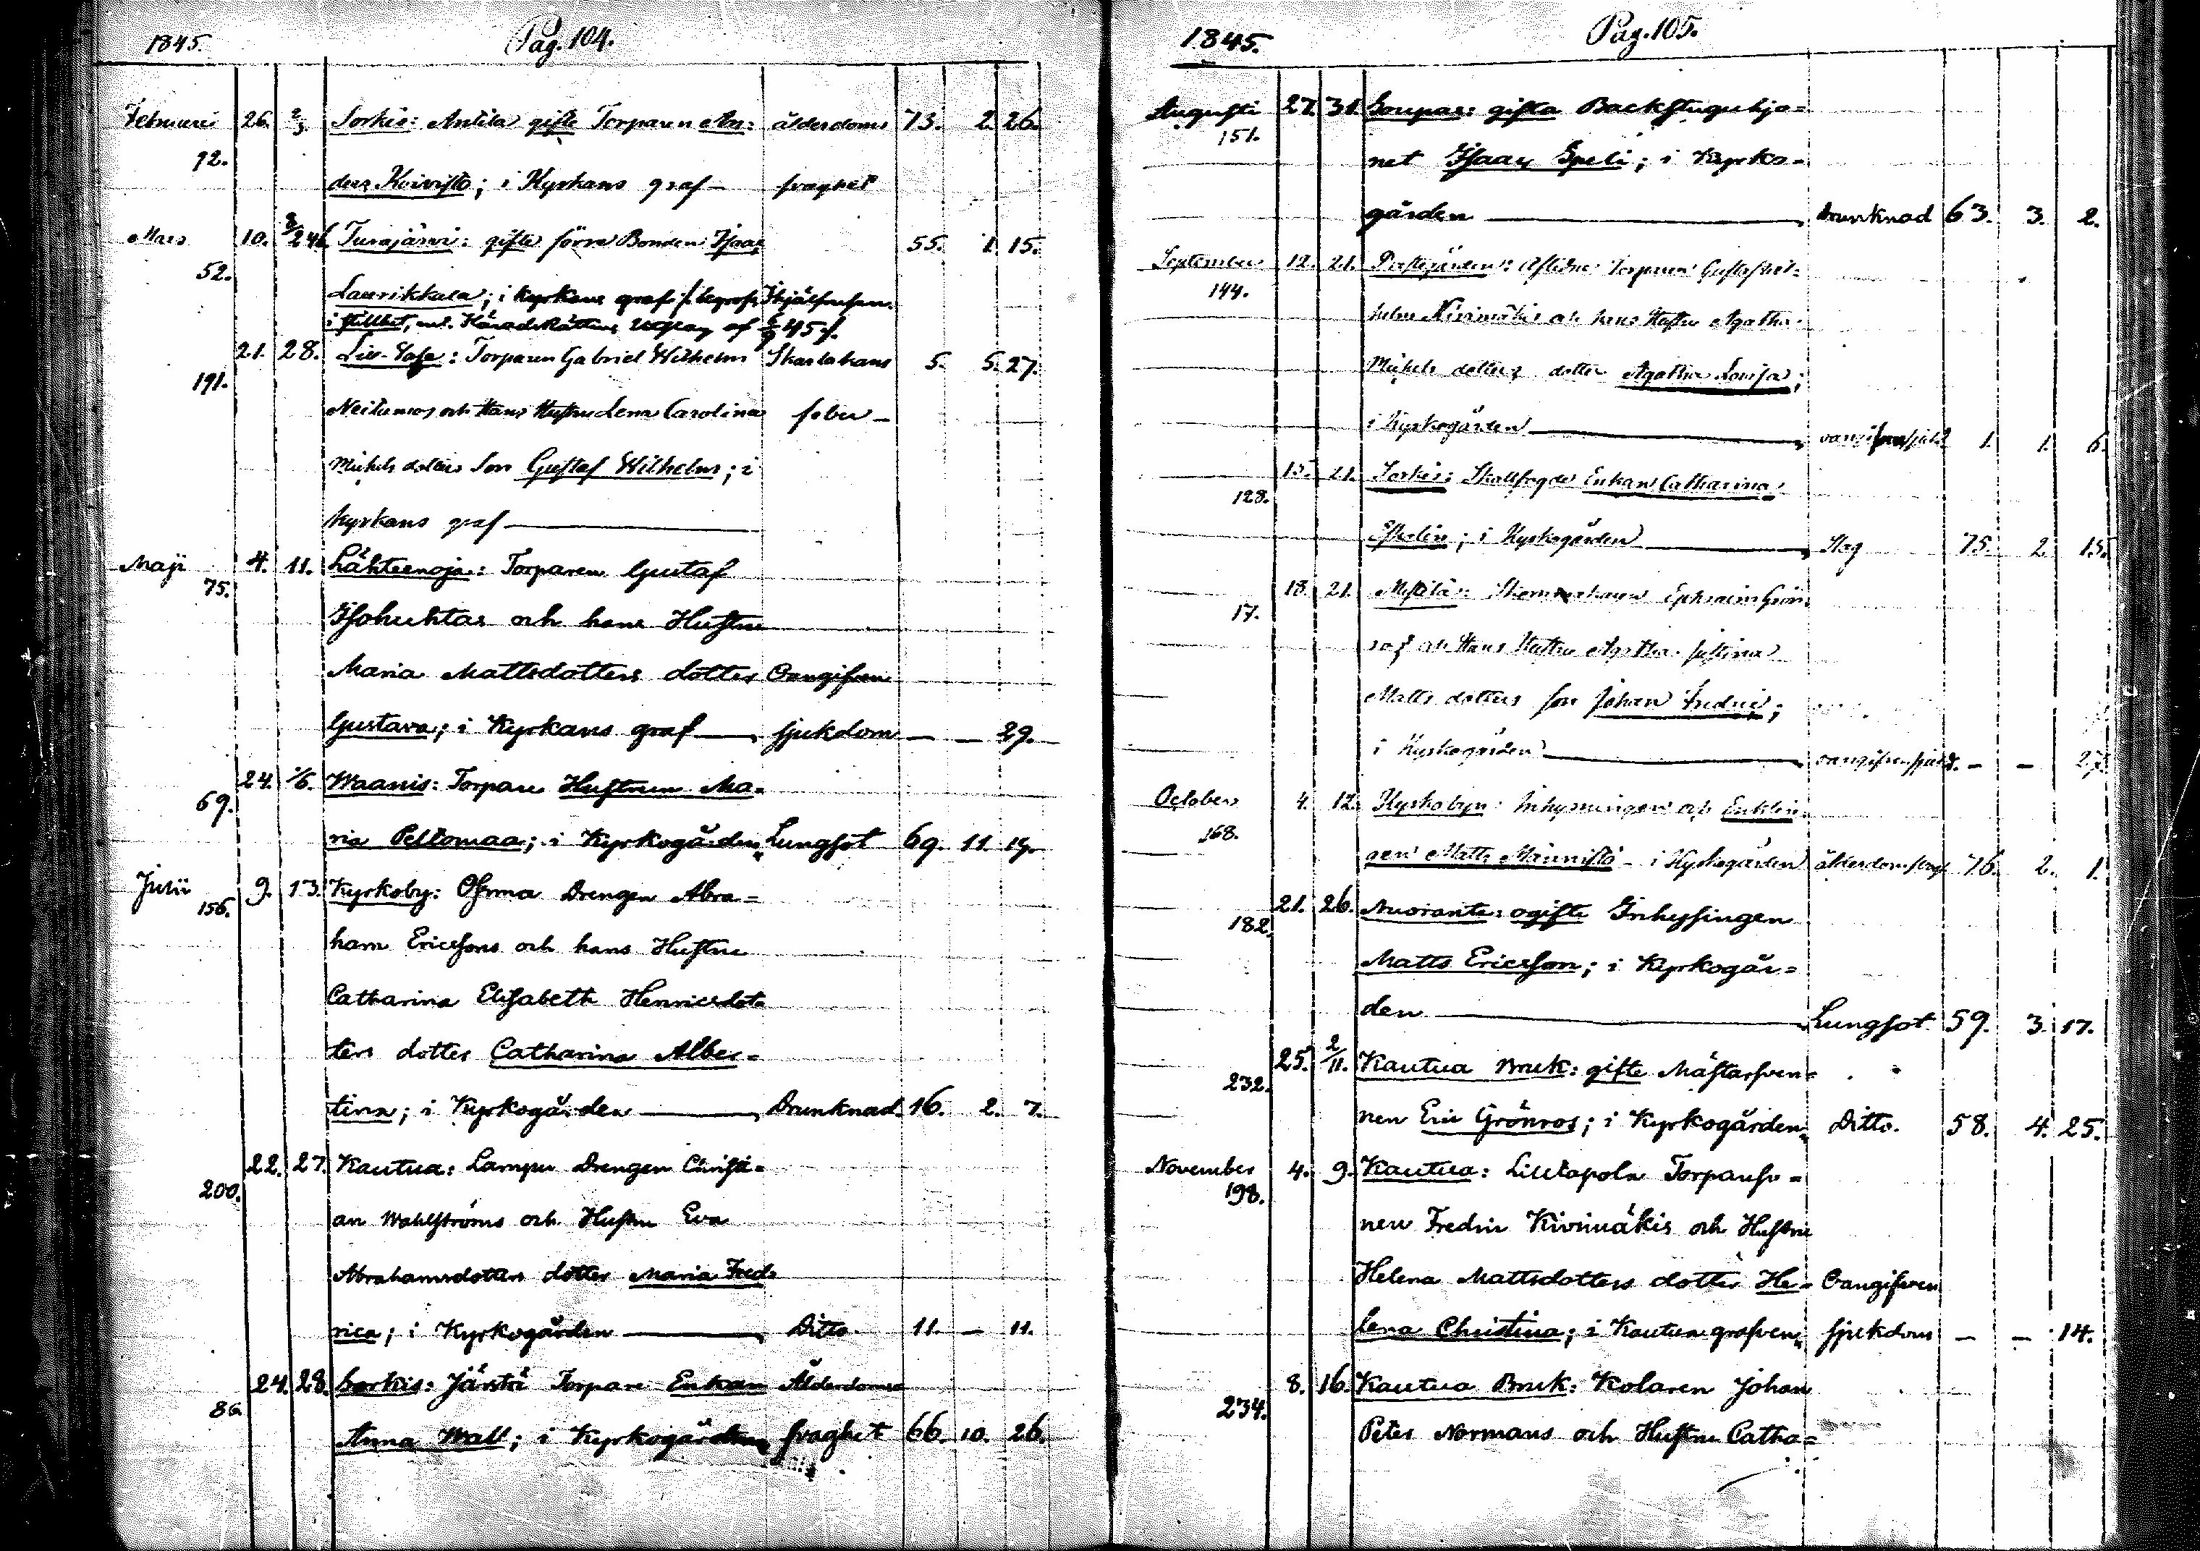 1845.
Pag. 104.
Februarii 26. 2/3 Sorkis: Antila gifte Torparen An: ålderdoms 73. 2. 26.
92.
ders Koivisto; i Kyrkans graf — svaghet
Mars 10. Turajärvi: gifte förra Bonden Isaac 55. 1. 15.
52.
Laurikkala; i kyrkans graf
i stillhet, enl. Härads Rättens af
21. 28. : Torparen Gabriel Wilhelm Skarlakans 5. 5. 27.
191.
och Hans Hustru Lena Carolina feber —
Michels dotters Son Gustaf Wilhelm; i
kyrkans graf —
Maji 4. 11. Lähteenoja: Torparen Gustaf
75.
Isohuhtas och hans Hustru
Maria Mattsdotters dotter Oangifven
Gustava; i Kyrkans graf — sjukdom — — 29.
24. 1/6. Waanis: Torpare Hustrun Ma-
69.
ria Peltomaa; i Kyrkogården Lungsot 69. 11. 19.
Julii 9. 13. Kyrkoby: Ofvma Drengen Abra=
156.
ham Ericssons och hans Hustru
Catharina Elisabeth Henricsdot-
ters dotter Catharina Alber=
tina; i Kyrkogården — Drunknad. 16. 2. 7.
22. 27. Kautua: Lampu Drengen Christi=
200.
an Wahlströms och Hustru Eva
Abrahamsdotters dotter Maria Fred-
rica; i Kyrkogården — Ditto. 11. — 11.
24. 28. Sorkis: Järvtä Torpare Enkan Ålderdoms
86.
Anna Wall; i Kyrkogården svaghet 66. 10. 26.
1845.
Pag. 105.
Augusti 27. 31. Soupas: gifta Backstuguhjo=
151.
net Isaac Speli; i Kyrko-
gården — Drunknad 63. 3. 2.
September 12. 21. Prestgården: Aflidne Torparen Gustaf Wil-
144.
helm Kivimäkis och hans Hustru Agatha
Michels dotters dotter Agatha Lovisa;
i Kyrkogården — oangifven sjukd. 1. 1. 6.
15. 21. Sorkis: Skallfogde Enkan Catharina
128.
; i Kyrkogården — Slag 75. 2. 15.
18. 21. Mestilä: Ephraim Grön
17.
ros och Hans Hustru Agatha Justina
Matts dotters son Johan Fredric;
i Kyrkogården — oangifven sjukd. — — 27.
October 4. 12. Kyrkobyn: Inhysningen och Enklin-
168.
gen Matts Männistö — i Kyrkogården ålderdomssvagh 76. 2. 1.
21. 26. Nuorante: ogifte Inhysingen
182.
Matts Ericsson; i Kyrkogår=
den — Lungsot 59. 3. 17.
25. 2/11. Kautua Bruk: gifte Mästarsven-
232.
nen Eric Grönros; i Kyrkogården Ditto. 58. 4. 25.
November 4. 9. Kautua: Liutapola Torpareso-
198.
nen Fredric Kivimäkis och Hustru
Helena Mattsdotters dotter He- Oangifven
lena Christina; i Kautua grafven sjukdom — — 14.
8. 16. Kautua Bruk: Kolaren Johan
234.
Peter Normans och Hustru Catha=